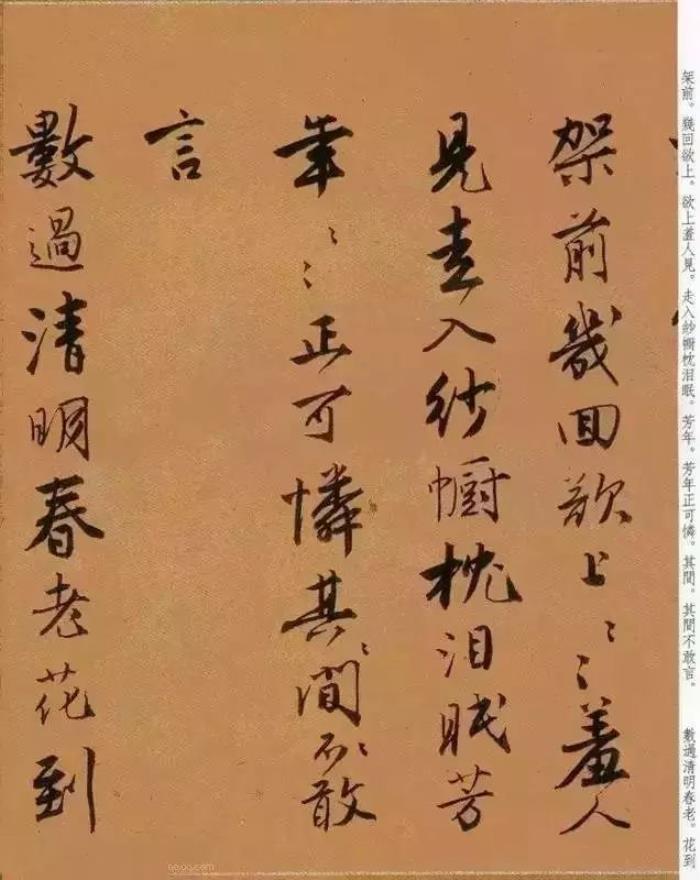 架前。幾回欲上。欲上羞人見。走入紗幮枕泪眠。芳年。芳年正可憐。其間。其間不敢言。
數過清明春老。花到
架前幾回欲上〻〻羞人
見走入紗幮枕泪眠芳
年〻〻正可憐其〻間〻不敢
言
數過清明春老花到